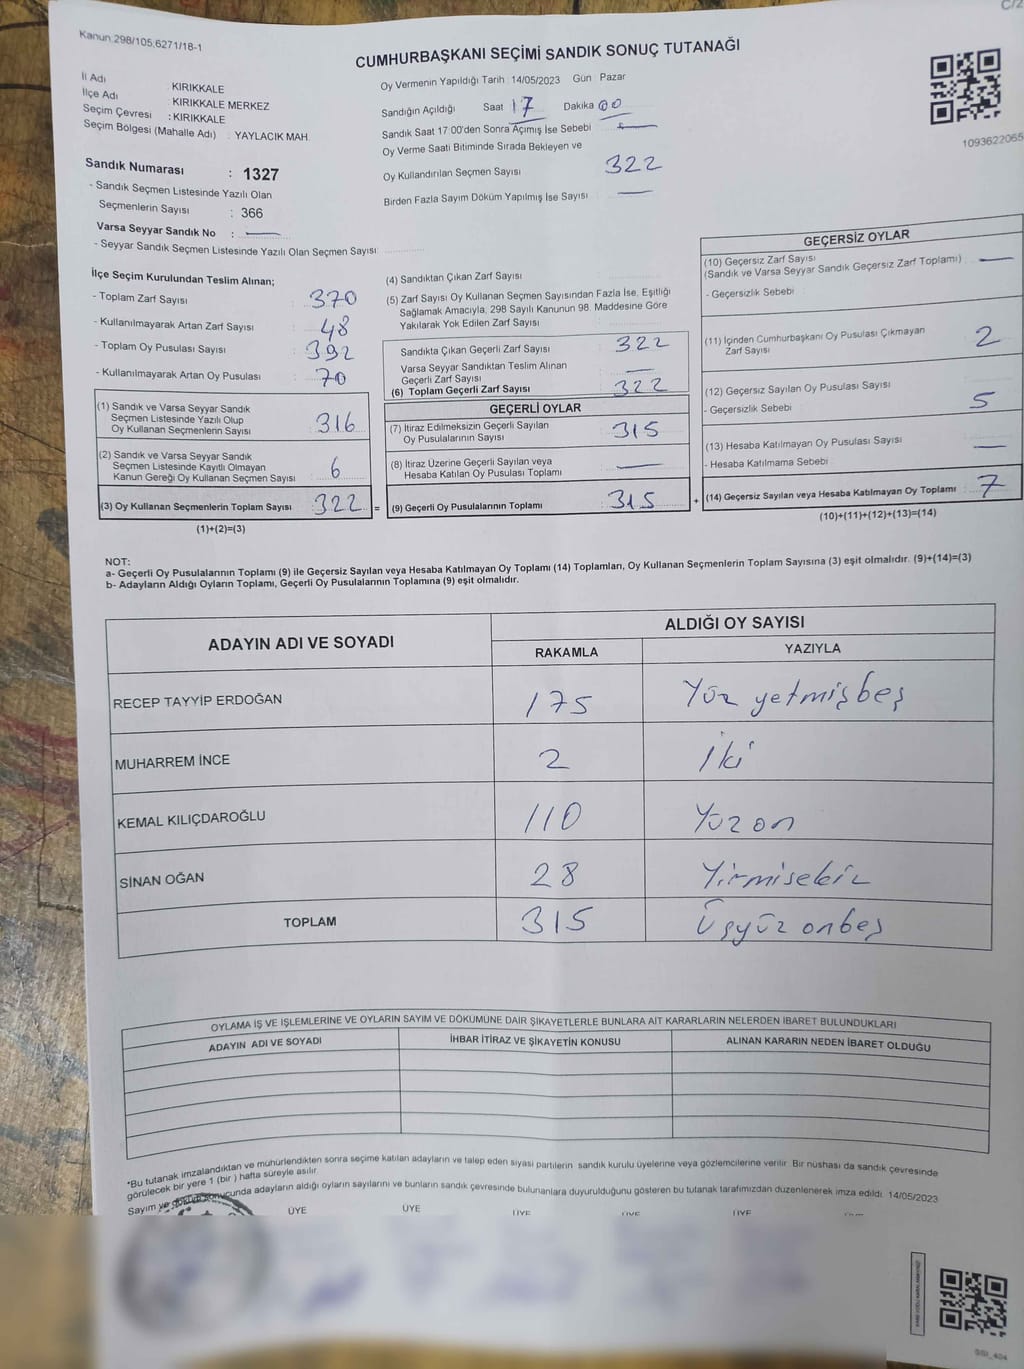 C/2
Kanun:298/105,6271/18-1
CUMHURBAŞKANI SEÇİMİ SANDIK SONUÇ TUTANAĞI
İl Adı : KIRIKKALE
İlçe Adı : KIRIKKALE MERKEZ
Seçim Çevresi : KIRIKKALE
Seçim Bölgesi (Mahalle Adı) : YAYLACIK MAH.
Sandık Numarası : 1327
- Sandık Seçmen Listesinde Yazılı Olan
Seçmenlerin Sayısı : 366
Varsa Seyyar Sandık No : —
- Seyyar Sandık Seçmen Listesinde Yazılı Olan Seçmen Sayısı:
Oy Vermenin Yapıldığı Tarih : 14/05/2023 Gün : Pazar
Sandığın Açıldığı Saat 17 Dakika 00
Sandık Saat 17:00'den Sonra Açımış İse Sebebi —
Oy Verme Saati Bitiminde Sırada Bekleyen ve
Oy Kullandırılan Seçmen Sayısı 322
Birden Fazla Sayım Döküm Yapılmış İse Sayısı —
1093622065
İlçe Seçim Kurulundan Teslim Alınan;
- Toplam Zarf Sayısı : 370
- Kullanılmayarak Artan Zarf Sayısı : 48
- Toplam Oy Pusulası Sayısı : 392
- Kullanılmayarak Artan Oy Pusulası : 70
(1) Sandık ve Varsa Seyyar Sandık
Seçmen Listesinde Yazılı Olup
Oy Kullanan Seçmenlerin Sayısı : 316
(2) Sandık ve Varsa Seyyar Sandık
Seçmen Listesinde Kayıtlı Olmayan
Kanun Gereği Oy Kullanan Seçmen Sayısı : 6
(3) Oy Kullanan Seçmenlerin Toplam Sayısı : 322 =
(1)+(2)=(3)
(4) Sandıktan Çıkan Zarf Sayısı
(5) Zarf Sayısı Oy Kullanan Seçmen Sayısından Fazla İse, Eşitliği
Sağlamak Amacıyla, 298 Sayılı Kanunun 98. Maddesine Göre
Yakılarak Yok Edilen Zarf Sayısı
Sandıkta Çıkan Geçerli Zarf Sayısı 322
Varsa Seyyar Sandıktan Teslim Alınan
Geçerli Zarf Sayısı —
(6) Toplam Geçerli Zarf Sayısı 322
GEÇERLİ OYLAR
(7) İtiraz Edilmeksizin Geçerli Sayılan
Oy Pusulalarının Sayısı 315
(8) İtiraz Üzerine Geçerli Sayılan veya
Hesaba Katılan Oy Pusulası Toplamı —
(9) Geçerli Oy Pusulalarının Toplamı 315 +
GEÇERSİZ OYLAR
(10) Geçersiz Zarf Sayısı
(Sandık ve Varsa Seyyar Sandık Geçersiz Zarf Toplamı) : —
- Geçersizlik Sebebi :
(11) İçinden Cumhurbaşkanı Oy Pusulası Çıkmayan
Zarf Sayısı 2
(12) Geçersiz Sayılan Oy Pusulası Sayısı
- Geçersizlik Sebebi : 5
(13) Hesaba Katılmayan Oy Pusulası Sayısı —
- Hesaba Katılmama Sebebi :
(14) Geçersiz Sayılan veya Hesaba Katılmayan Oy Toplamı : 7
(10)+(11)+(12)+(13)=(14)
NOT:
a- Geçerli Oy Pusulalarının Toplamı (9) ile Geçersiz Sayılan veya Hesaba Katılmayan Oy Toplamı (14) Toplamları, Oy Kullanan Seçmenlerin Toplam Sayısına (3) eşit olmalıdır. (9)+(14)=(3)
b- Adayların Aldığı Oyların Toplamı, Geçerli Oy Pusulalarının Toplamına (9) eşit olmalıdır.
ADAYIN ADI VE SOYADI
ALDIĞI OY SAYISI
RAKAMLA YAZIYLA
RECEP TAYYİP ERDOĞAN 175 Yüz yetmişbeş
MUHARREM İNCE 2 İki
KEMAL KILIÇDAROĞLU 110 Yüz on
SİNAN OĞAN 28 Yirmisekiz
TOPLAM 315 Üçyüz onbeş
OYLAMA İŞ VE İŞLEMLERİNE VE OYLARIN SAYIM VE DÖKÜMÜNE DAİR ŞİKAYETLERLE BUNLARA AİT KARARLARIN NELERDEN İBARET BULUNDUKLARI
ADAYIN ADI VE SOYADI İHBAR İTİRAZ VE ŞİKAYETİN KONUSU ALINAN KARARIN NEDEN İBARET OLDUĞU
*Bu tutanak imzalandıktan ve mühürlendikten sonra seçime katılan adayların ve talep eden siyasi partilerin sandık kurulu üyelerine veya gözlemcilerine verilir. Bir nüshası da sandık çevresinde
görülecek bir yere 1 (bir) hafta süreyle asılır.
Sayım ve sonucunda adayların aldığı oyların sayılarını ve bunların sandık çevresinde bulunanlara duyurulduğunu gösteren bu tutanak tarafımızdan düzenlenerek imza edildi. 14/05/2023
ÜYE ÜYE ÜYE ÜYE ÜYE